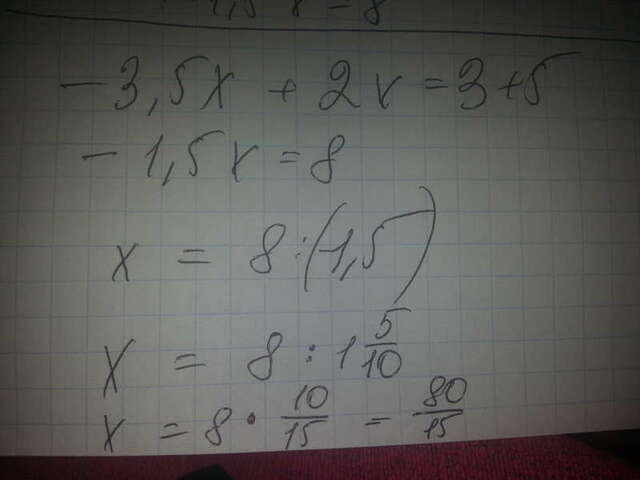 -1,5 x = 8
-3,5x + 2x = 3+5
-1,5x = 8
x = 8:(-1,5)
x = 8 : 1 5/10
x = 8 · 10/15 = 80/15